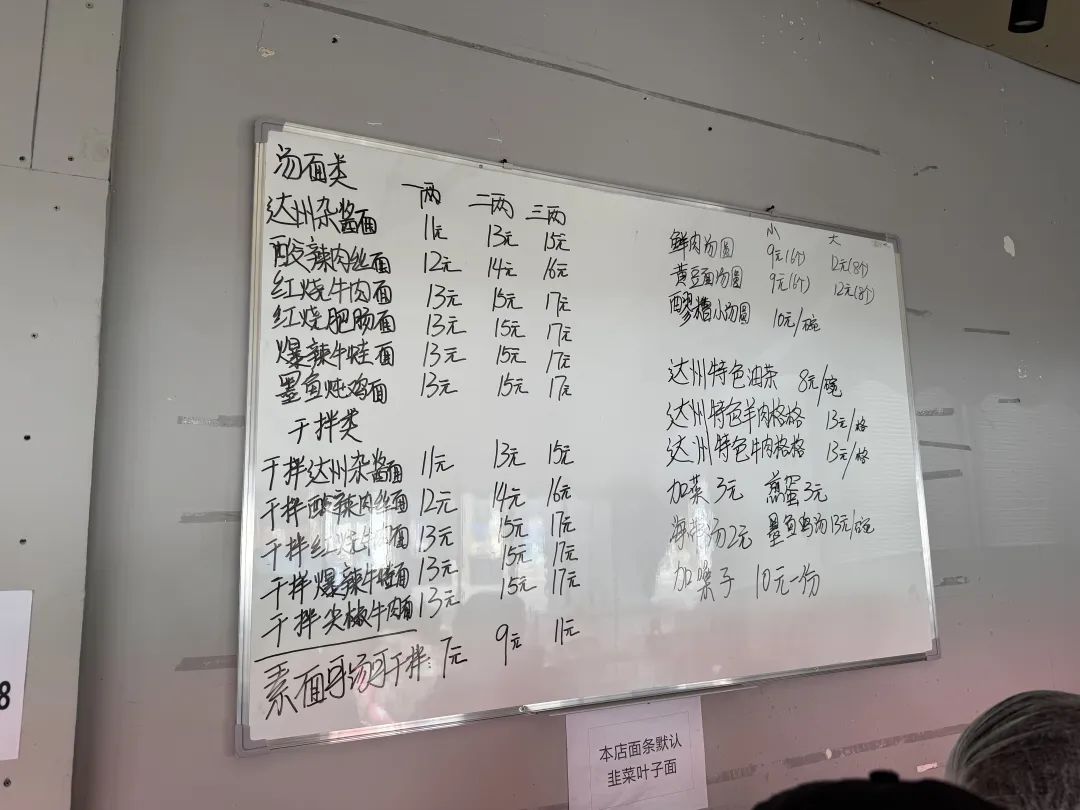 汤面类 一两 二两 三两
达州杂酱面 11元 13元 15元
酸辣肉丝面 12元 14元 16元
红烧牛肉面 13元 15元 17元
红烧肥肠面 13元 15元 17元
爆辣牛蛙面 13元 15元 17元
墨鱼炖鸡面 13元 15元 17元
干拌类
干拌达州杂酱面 11元 13元 15元
干拌酸辣肉丝面 12元 14元 16元
干拌红烧牛肉面 13元 15元 17元
干拌爆辣牛蛙面 13元 15元 17元
干拌尖椒牛肉面 13元 15元 17元
素面可汤可干拌: 7元 9元 11元
小 大
鲜肉汤圆 9元(6个) 12元(8个)
黄豆面汤圆 9元(6个) 12元(8个)
醪糟小汤圆 10元/碗
达州特色油茶 8元/碗
达州特色羊肉格格 13元/格
达州特色牛肉格格 13元/格
加菜3元 煎蛋3元
海带汤2元 墨鱼鸡汤13元/碗
加臊子 10元一份
本店面条默认
韭菜叶子面
8